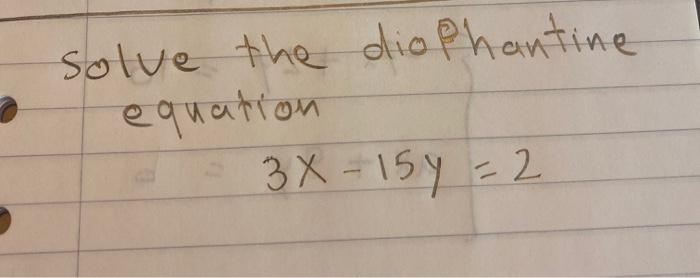 solve the diophantine
equation
3x - 15y = 2